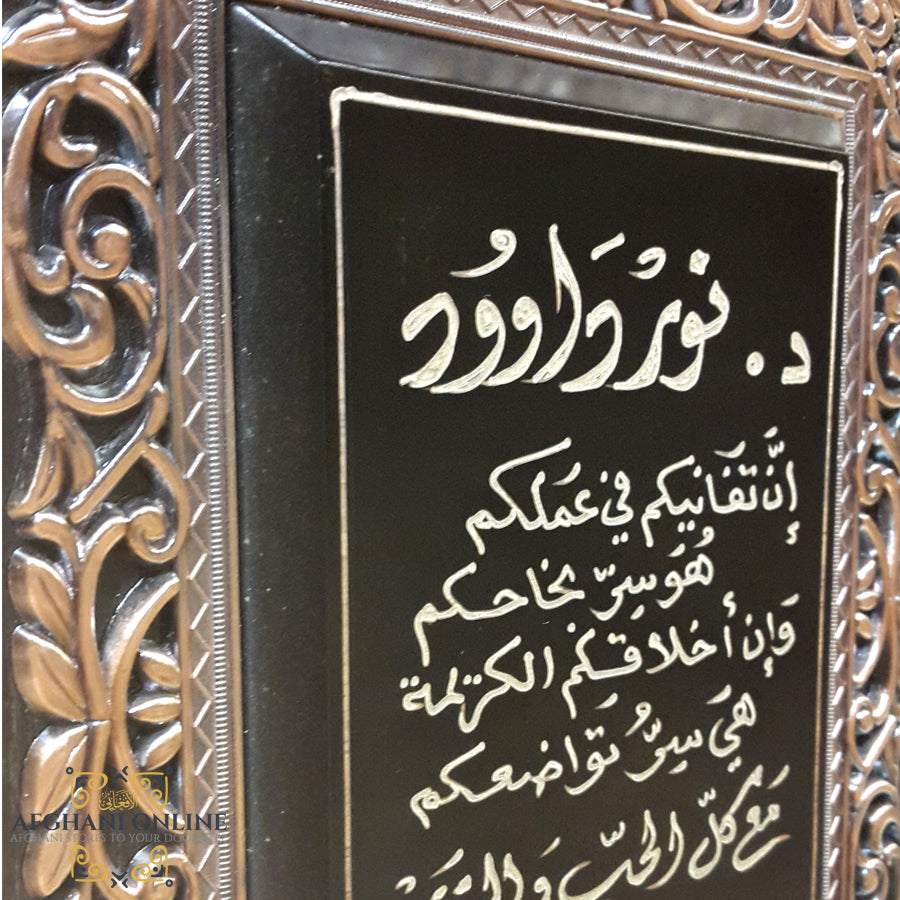 د. نُورْ دَاوُود
إنَّ تَفَانِيكم في عَملكم
هُوَ سِرّ نجاحكم
وَإن أخلاقِكم الكريمة
هيَ سِرُّ تَواضعكم
مَع كلّ الحبّ وَ
الأفغاني
AFGHANI ONLINE
AFGHANI STORES TO YOUR DOO